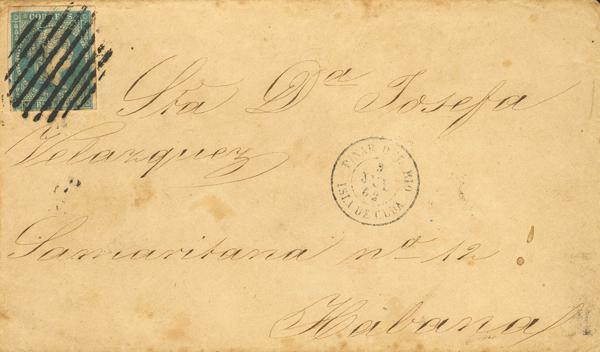 CORREOS
Sta Da Josefa
Velazquez
PINAR DEL RIO
3
62
ISLA DE CUBA
Samaritana no 12
Habana